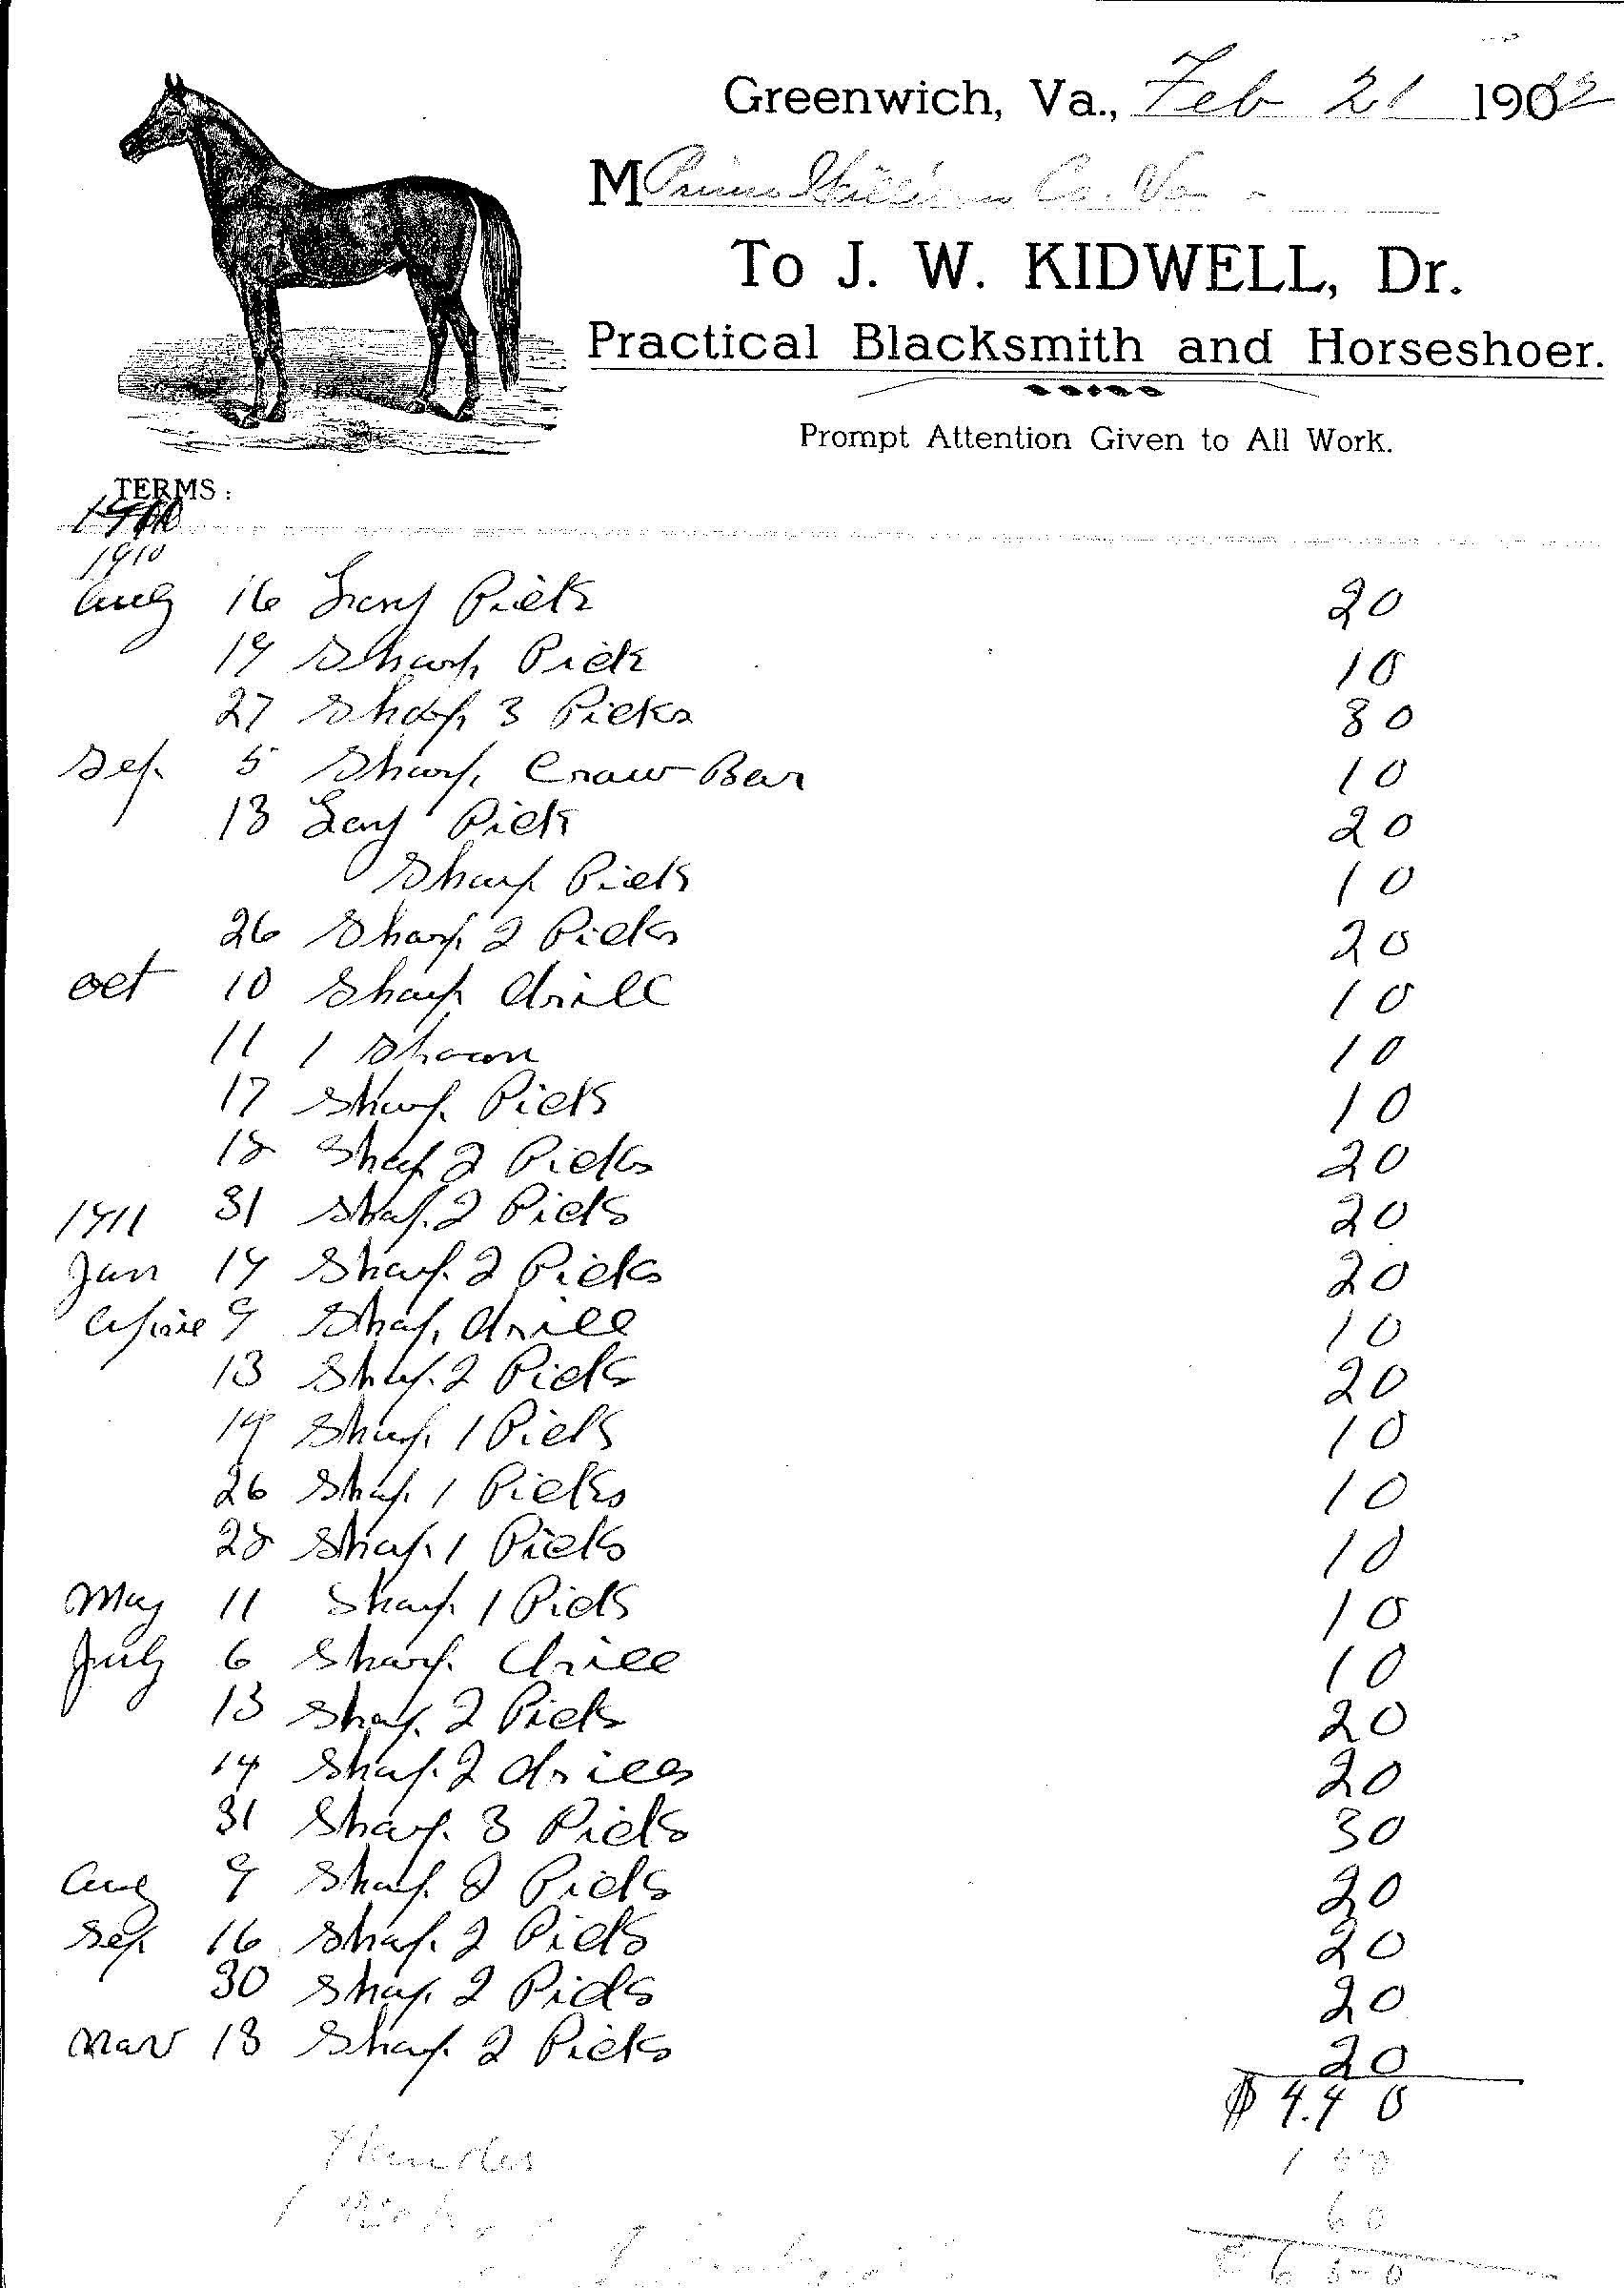 Greenwich, Va., Feb 21 1912
M Prince William Co. Va
To J. W. KIDWELL, Dr.
Practical Blacksmith and Horseshoer.
Prompt Attention Given to All Work.
TERMS:
1910
Aug 16 Lay Pick 20
19 Sharp Pick 10
27 Sharp 3 Picks 30
Sep. 5 Sharp. Craw Bar 10
13 Lay Pick 20
Sharp Pick 10
26 Sharp. 2 Picks 20
Oct 10 Sharp drill 10
11 1 10
17 Sharp. Pick 10
18 Sharp 2 Picks 20
31 Sharp. 2 Picks 20
1911
Jan 14 Sharp. 2 Picks 20
Aprile 9 Sharp. drill 10
13 Sharp. 2 Picks 20
19 Sharp. 1 Pick 10
26 Sharp. 1 Picks 10
28 Sharp. 1 Picks 10
May 11 Sharp. 1 Pick 10
July 6 Sharp. drill 10
13 Sharp. 2 Picks 20
14 Sharp. 2 drills 20
31 Sharp. 3 Picks 30
Aug 9 Sharp. 2 Picks 20
Sep. 16 Sharp. 2 Picks 20
30 Sharp. 2 Picks 20
Nov 13 Sharp. 2 Picks 20
$ 4.40
Handles 1 50
1 60
6 50